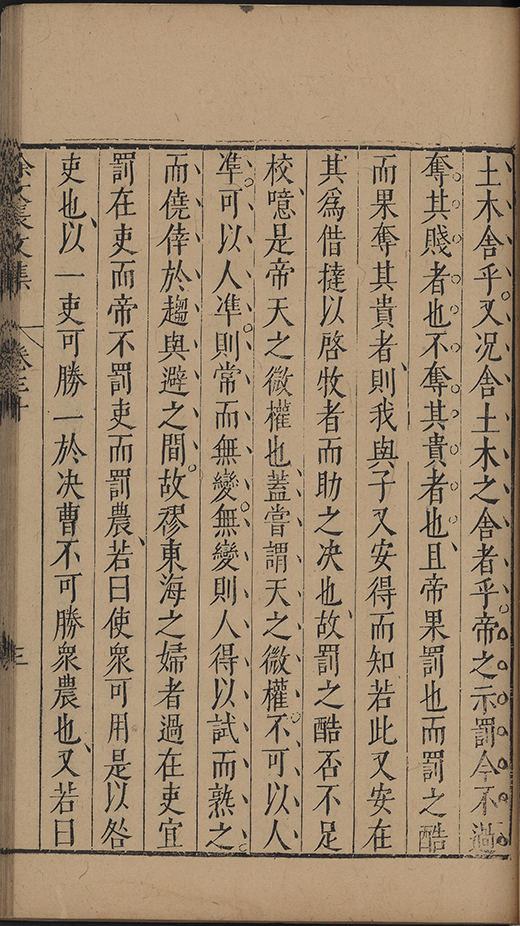 土木舍乎又况舍土木之舍者乎帝之示罰今不過
奪其賤者也不奪其貴者也且帝果罰也而罰之酷
而果奪其貴者則我與子又安得而知若此又安在
其爲借撻以啓牧者而助之决也故罰之酷否不足
校噫是帝天之微權也蓋嘗謂天之微權不可以人
準可以人準則常而無變無變則人得以試而熟之
而僥倖於趨與避之間故穆東海之婦者過在吏宜
罰在吏而帝不罰吏而罰農若曰使衆可用是以咎
吏也以一吏可勝一於决曹不可勝衆農也又若曰
徐文長文集
卷三十
三